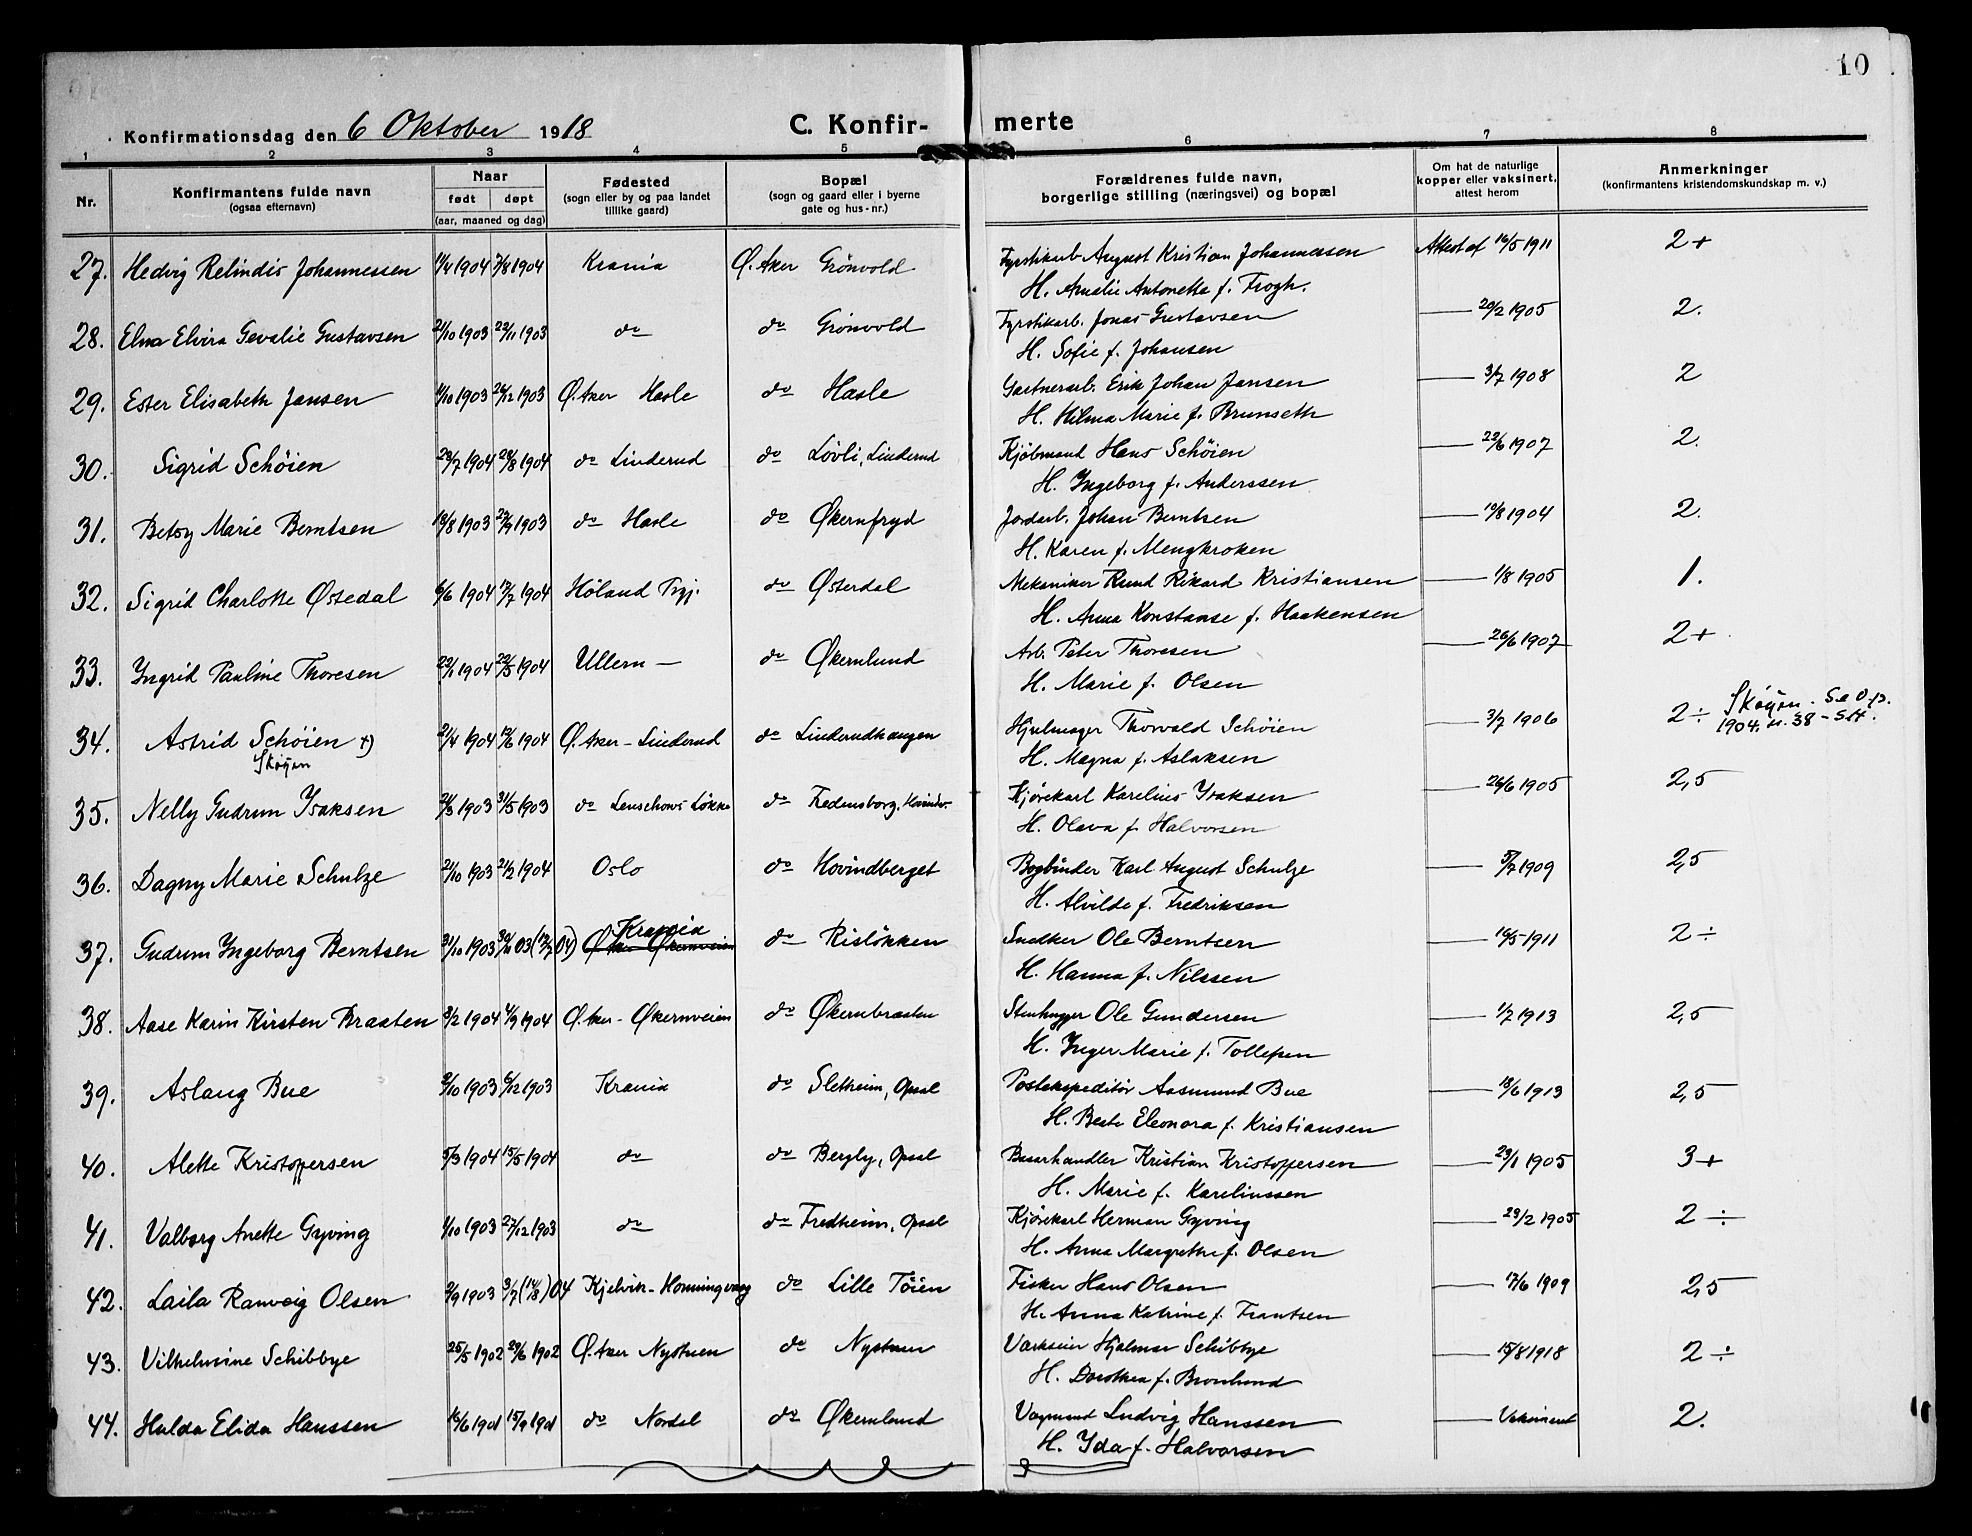 10
Konfirmationsdag den 6 Oktober 1918
C. Konfir- merte
1 2 3 4 5 6 7 8
Nr.
Konfirmantens fulde navn
(ogsaa efternavn)
Naar
født døpt
(aar, maaned og dag)
Fødested
(sogn eller by og paa landet
tillike gaard)
Bopæl
(sogn og gaard eller i byerne
gate og hus-nr.)
Forældrenes fulde navn,
borgerlige stilling (næringsvei) og bopæl
Om hat de naturlige
kopper eller vaksinert,
attest herom
Anmerkninger
(konfirmantens kristendomskundskap m. v.)
27. Hedvig Relindis Johannessen 11/4 1904 7/8 1904 Krania Ø. Aker Grönvold Fyrstikarb. August Kristian Johannessen Attest af 16/5 1911 2+
H. Amalie Antonette f. Frogh.
28. Elna Elvira Gevalie Gustavsen 21/10 1903 22/11 1903 do do Grönvold Fyrstikarb. Jonas Gustavsen 20/2 1905 2.
H. Sofie f. Johansen
29. Ester Elisabeth Jansen 11/10 1903 26/12 1903 Ø. Aker Hasle do Hasle Gartnerarb. Erik Johan Jansen 3/7 1908 2
H. Hilma Marie f. Brunseth
30. Sigrid Schöien 23/7 1904 28/8 1904 do Linderud do Lövli, Linderud Kjöbmand Hans Schöien 22/6 1907 2.
H. Ingeborg f. Anderssen
31. Betsy Marie Berntsen 13/8 1903 27/9 1903 do Hasle do Økernfryd Jordarb. Johan Berntsen 10/8 1904 2.
H. Karen f. Mengkroken
32. Sigrid Charlotte Østedal 6/6 1904 17/7 1904 Höland Prgj. do Østerdal Mekaniker Knud Rikard Kristiansen 1/8 1905 1.
H. Anna Konstanse f. Haakensen
33. Yngrid Pauline Thoresen 22/1 1904 22/5 1904 Ullern — do Økernlund Arb. Peter Thoresen 26/6 1907 2+
H. Marie f. Olsen
34. Astrid Schöien +) 21/4 1904 12/6 1904 Ø. Aker - Linderud do Linderudhaugen Hjulmager Thorvald Schöien 3/7 1906 2÷ Skøyen. Se D.p.
Skøyen H. Magna f. Aslaksen 1904. n. 38 - SH.
35. Nelly Gudrun Isaksen 21/3 1903 31/5 1903 do Lenschows Løkke do Fredensborg, Hovinder- Kjörekarl Karelius Isaksen 26/6 1905 2,5
H. Olava f. Halvorsen
36. Dagny Marie Schulze 21/10 1903 21/2 1904 Oslo do Hovindberget Bogbinder Karl August Schulze 5/7 1909 2,5
H. Alvilde f. Fredriksen
Krania
37. Gudrun Yngeborg Berntsen 31/10 1903 30/11 03 (17/7 04) Ø. Aker Økernveien do Rislökken Snedker Ole Berntsen 16/5 1911 2÷
H. Hanna f. Nilssen
38. Aase Karin Kirsten Braaten 3/2 1904 4/9 1904 Ø. Aker - Økernveien do Økernbraaten Stenhugger Ole Gundersen 1/7 1913 2,5
H. Inger Marie f. Tollefsen
39. Aslaug Bue 9/10 1903 6/12 1903 Krania do Sletheim, Opsal Postekspeditör Aasmund Bue 18/6 1913 2,5
H. Beate Eleonora f. Kristiansen
40. Alette Kristoffersen 5/3 1904 15/5 1904 do do Bergly, Opsal Basarhandler Kristian Kristoffersen 23/1 1905 3+
H. Marie f. Kareliussen
41. Valborg Anette Gyving 1/10 1903 27/12 1903 do do Fredheim, Opsal Kjörekarl Herman Gyving 23/2 1905 2÷
H. Anna Margrethe f. Olsen
42. Laila Ranveig Olsen 9/9 1903 3/7 (14/8) 04 Kjelvik - Honningsvaag do Lille Töien Fisker Hans Olsen 17/6 1909 2,5
H. Anna Katrine f. Frantsen
43. Vilhelmine Schibbye 25/5 1902 29/6 1902 Ø. Aker Nystuen do Nystuen Værkseier Hjalmar Schibbye 15/8 1918 2÷
H. Dorothea f. Bronlund
44. Hulda Elida Hanssen 16/6 1901 15/9 1901 do Nordal do Økernlund Vognmand Ludvig Hanssen Vaksineret 2.
H. Yda f. Halvorsen